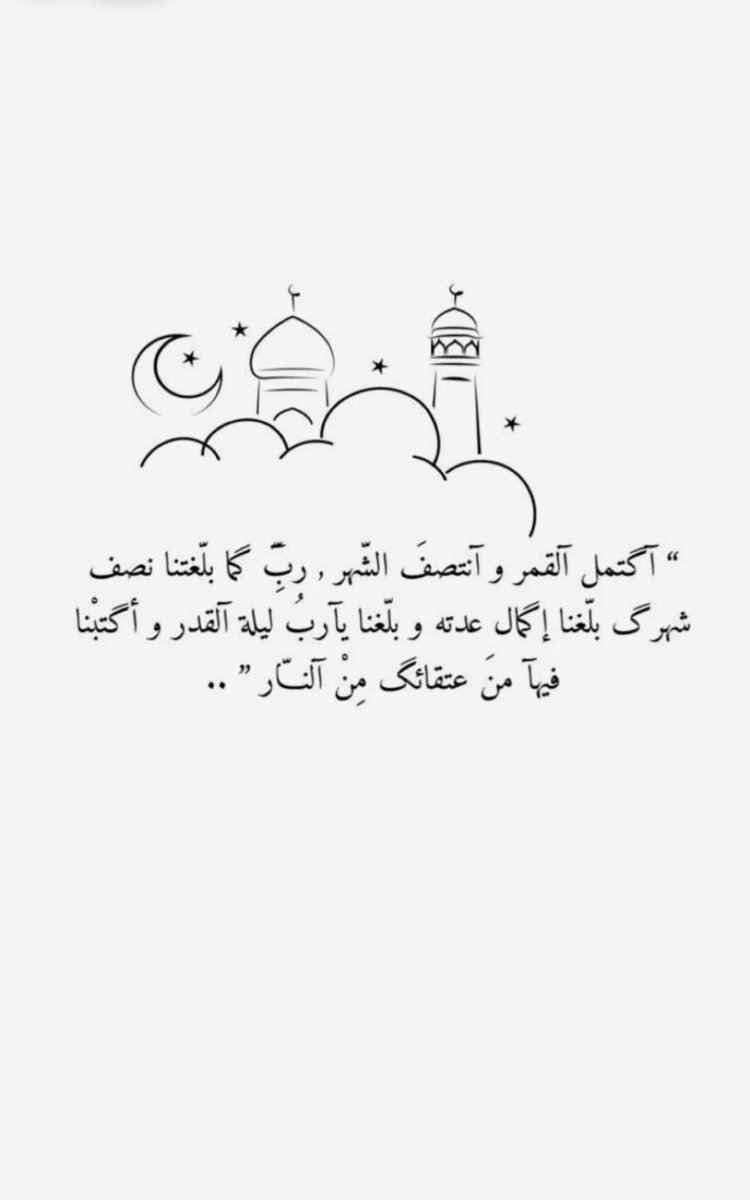 “ آگتمل آلقمر و آنتصفَ الشّهر , ربِّ گما بلّغتنا نصف
شهرگ بلّغنا إگمال عدته و بلّغنا يآربُ ليلة آلقدر و أگتبْنا
فيهآ منَ عتقائگ مِنْ آلنــّار ” ..